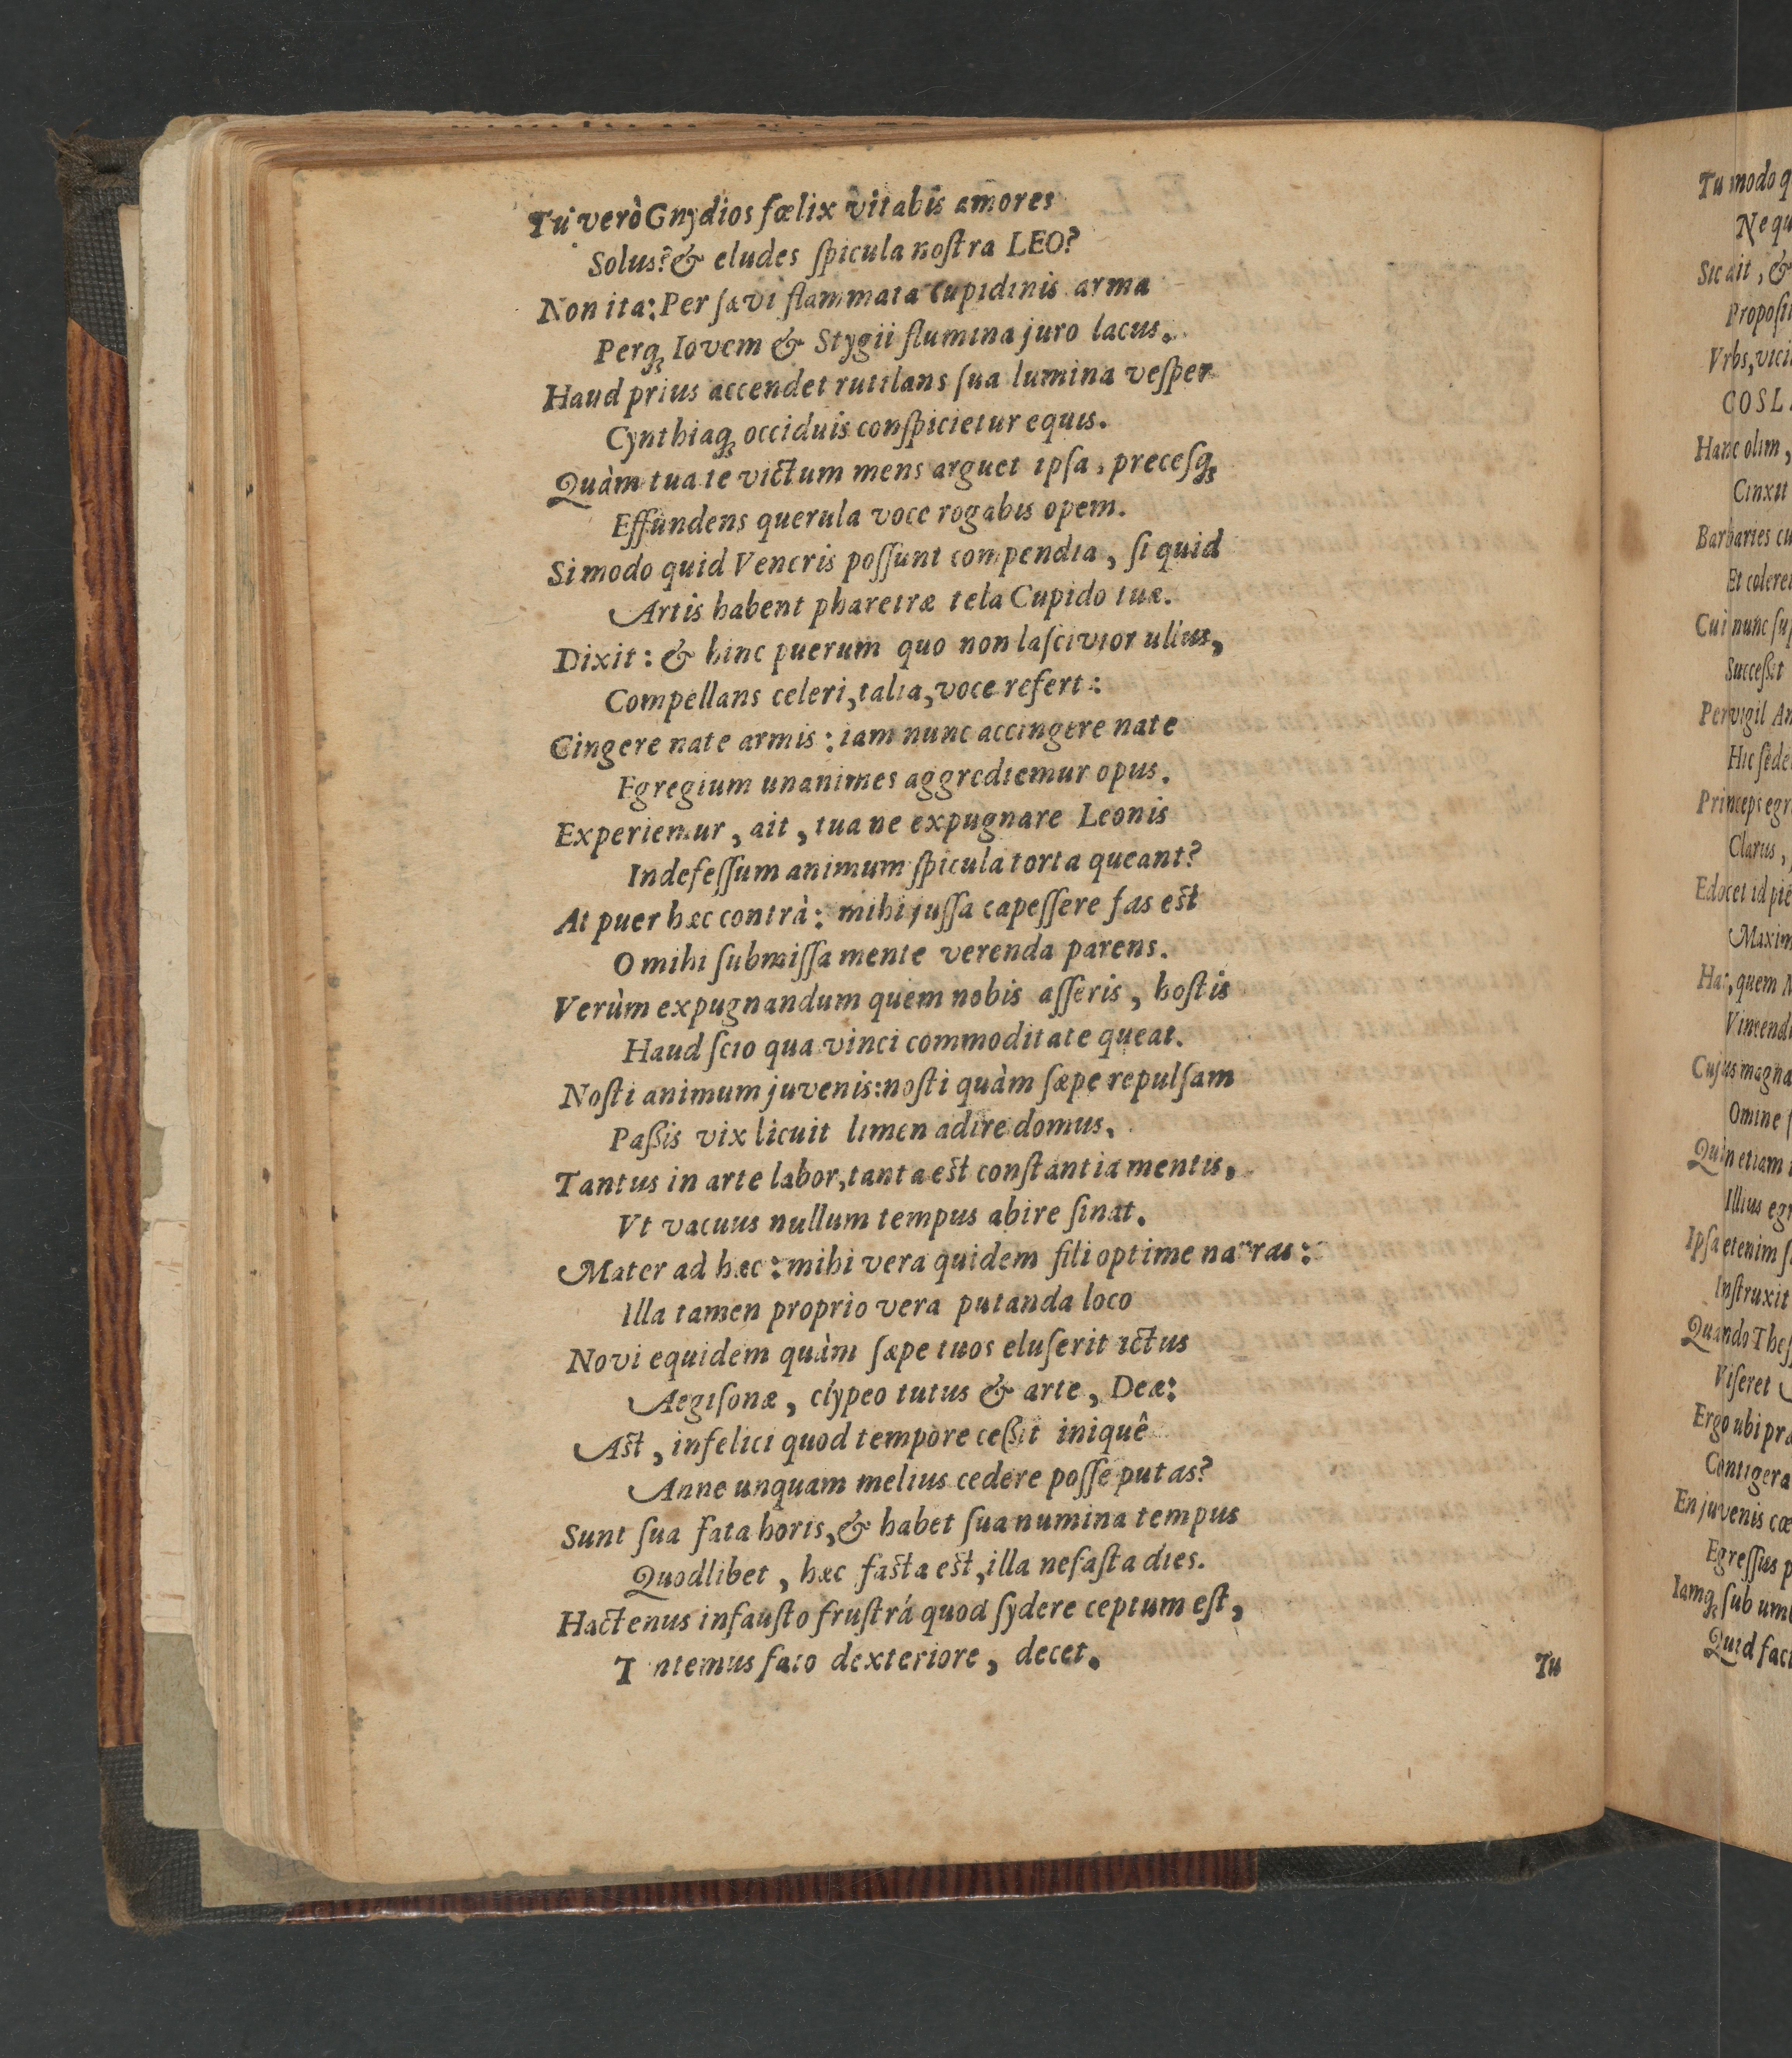 Tu verò Gnydios fœlix vitabis amores
Solus? & eludes ſpicula noſtra LEO?
Non ita: Per ſævi flammata Cupidinis arma
Perq́ꝫ Iovem & Stygii flumina juro lacus.
Haud prius accendet rutilans ſua lumina veſper
Cynthiaq́ꝫ occiduis conſpicietur equis.
Quàm tua te victum mens arguet ipſa, preceſq́ꝫ
Effundens querula voce rogabis opem.
Si modo quid Veneris poſſunt compendia, ſi quid
Artis habent pharetræ tela Cupido tuæ.
Dixit: & hinc puerum quo non laſcivior ullus,
Compellans celeri, talia, voce refert:
Cingere nate armis: iam nunc accingere nate
Egregium unanimes aggrediemur opus.
Experiemur, ait, tua ne expugnare Leonis
Indefeſſum animum ſpicula torta queant?
At puer hæc contrà: mihi juſſa capeſſere fas eſt
O mihi ſubmiſſa mente verenda parens.
Verùm expugnandum quem nobis aſſeris, hoſtis
Haud ſcio qua vinci commoditate queat.
Noſti animum juvenis: noſti quàm ſæpe repulſam
Paßis vix licuit limen adire domus.
Tantus in arte labor, tanta eſt conſtantia mentis,
Vt vacuus nullum tempus abire ſinat.
Mater ad hæc: mihi vera quidem fili optime narras:
Illa tamen proprio vera putanda loco
Novi equidem quàm ſæpe tuos eluſerit ictus
Aegiſonæ, clypeo tutus & arte, Deæ:
Aſt, infelici quod tempore ceßit iniquê
Anne unquam melius cedere poſſe putas?
Sunt ſua fata horis, & habet ſua numina tempus
Quodlibet, hæc faſta eſt, illa nefaſta dies.
Hactenus infauſto fruſtrá quod ſydere ceptum eſt,
T ntemus fato dexteriore, decet.
Tu
Tu modo q
Ne qu
Sic ait, &
Propoſi
Vrbs, vici
COSL
Hanc olim,
Cinxit
Barbaries cu
Et colere
Cui nunc ſu
Succeßit
Pervigil An
Hic ſede
Princeps egr
Clarus,
Edocet id pie
Maxim
Hac, quem M
Vincend
Cujus magna
Omine ſ
Quin etiam
Illius eg
Ipſa etenim ſ
Inſtruxit
Quando Theſ
Viſeret
Ergo ubi pra
Contigera
En juvenis cœ
Egreſſus p
Iamq́ꝫ ſub um
Quid fac